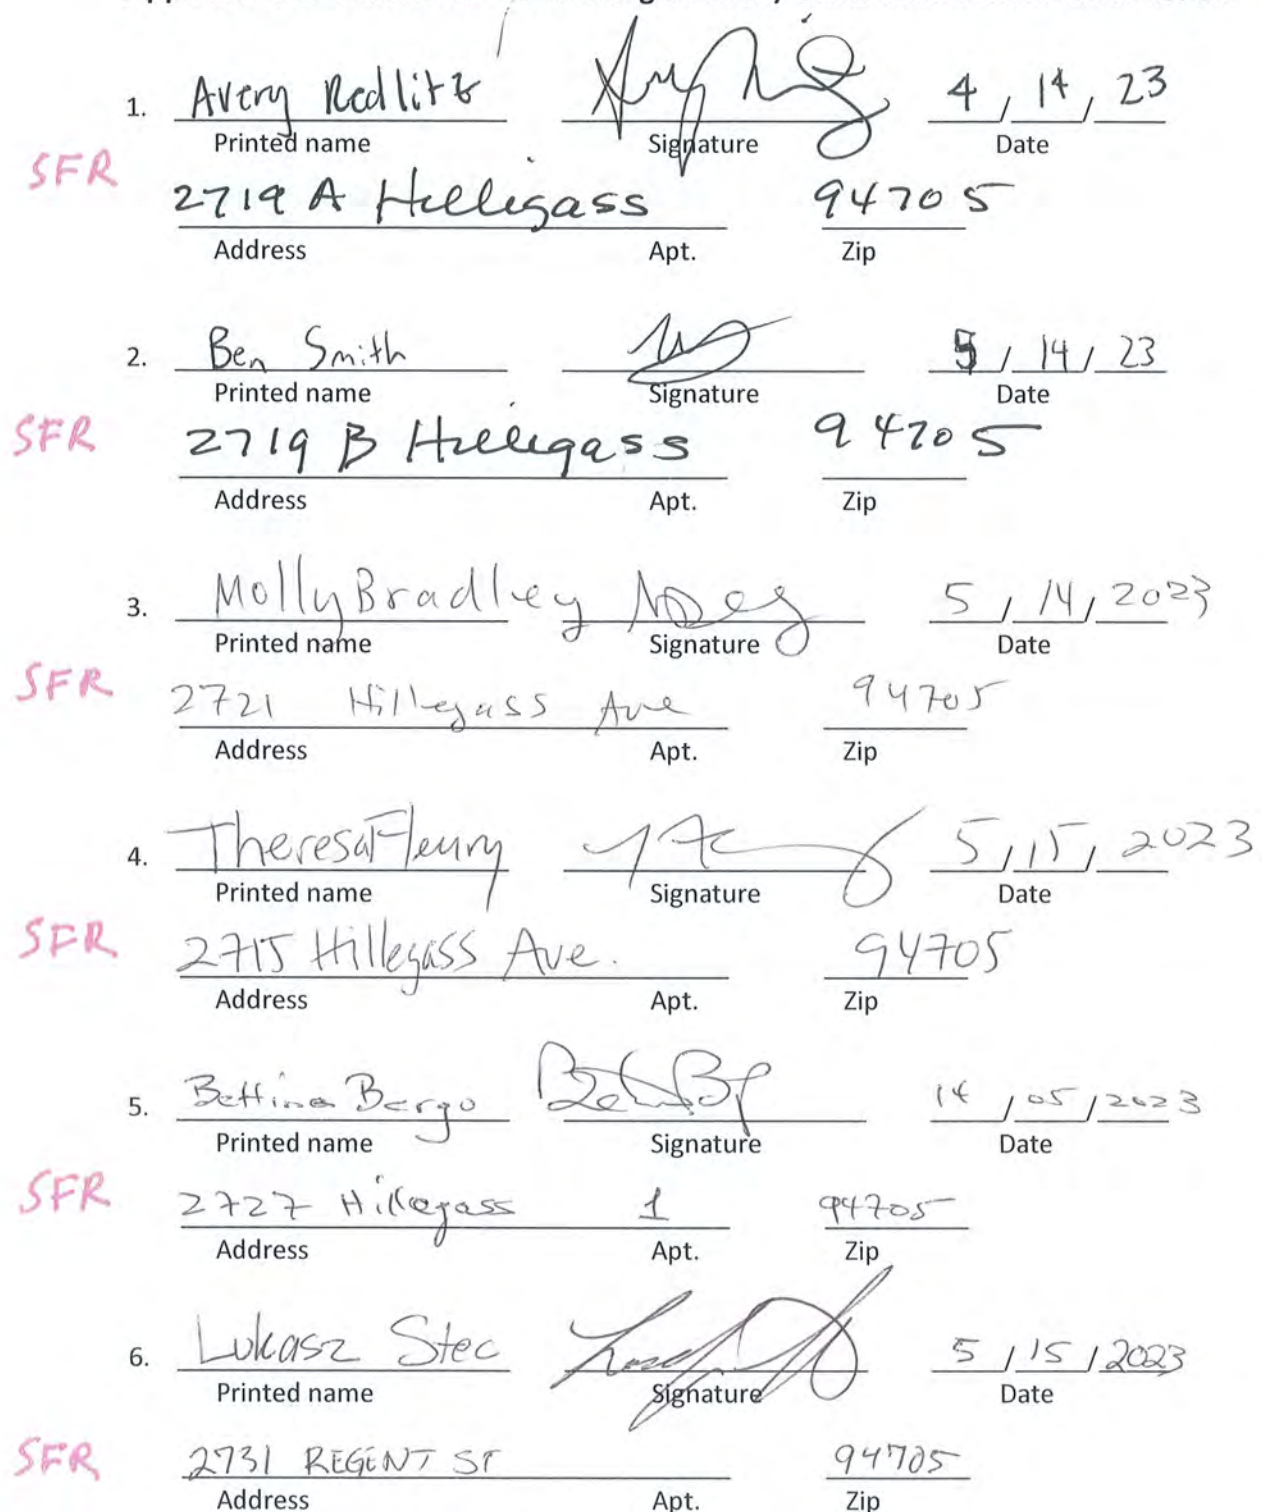 1. Avery Redlitz 4 / 14 / 23
Printed name Signature Date
SFR
2719 A Hillegass 94705
Address Apt. Zip
2. Ben Smith 5 / 14 / 23
Printed name Signature Date
SFR
2719 B Hillegass 94705
Address Apt. Zip
3. Molly Bradley 5 / 14 / 2023
Printed name Signature Date
SFR
2721 Hillegass Ave 94705
Address Apt. Zip
4. Theresa Fleury 5 / 15 / 2023
Printed name Signature Date
SFR
2715 Hillegass Ave. 94705
Address Apt. Zip
5. Bettina Bergo 14 / 05 / 2023
Printed name Signature Date
SFR
2727 Hillegass 1 94705
Address Apt. Zip
6. Lukasz Stec 5 / 15 / 2023
Printed name Signature Date
SFR
2731 REGENT ST 94705
Address Apt. Zip